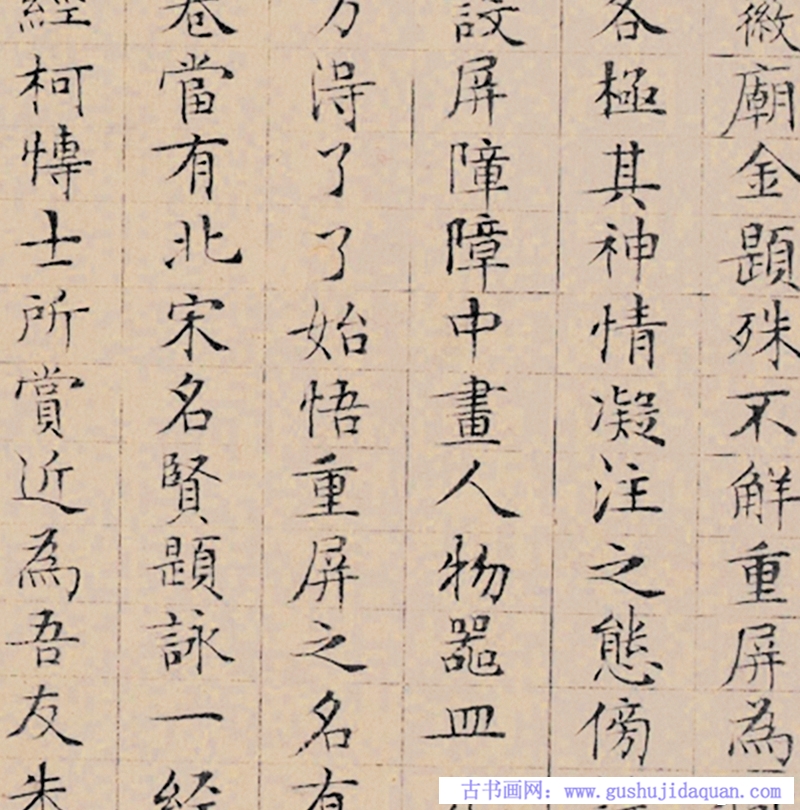 徽廟金題殊不解重屏為
各極其神情凝注之態傍
設屏障障中畫人物器皿
方得了了始悟重屏之名有
卷當有北宋名賢題詠一經
經柯博士所賞近為吾友朱
古书画网：www.gushujidaquan.com